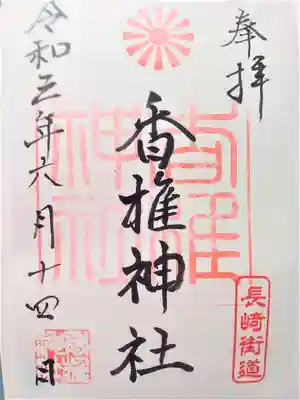 奉拝
香椎神社
長崎街道
令和三年六月十四日
香椎神社